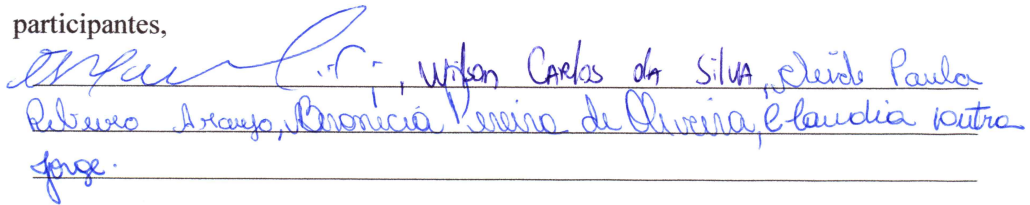 participantes,
, Wilson CARlos dA SilvA, Cleide Paula
Ribeiro Araujo, Beronicia Pereira de Oliveira, Claudia
Jorge.